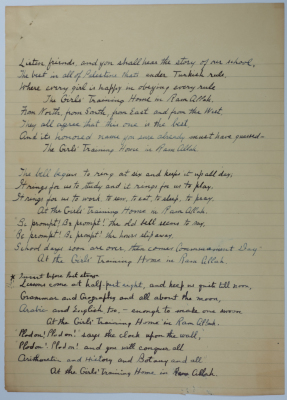 Listen friends, and you shall hear the story of our school,
The best in all of Palestine, that's under Turkish rule,
Where every girl is happy in obeying every rule
The Girls' Training Home in Ram Allah.
From North, from South, from East and from the West
They all agree that this one is the best
And its honored name you sure already must have guessed—
The Girls' Training Home in Ram Allah.
The bell begins to ring at six and keeps it up all day;
It rings for us to study and it rings for us to play,
It rings for us to work, to sew, to eat, to sleep, to pray.
At the Girls' Training Home in Ram Allah.
"Be prompt! Be prompt! the old bell seems to say,
Be prompt! Be prompt! the hours slip away,
School days soon are over, then comes Commencement Day!
At the Girls' Training Home in Ram Allah.
* Insert before last stanza
Lessons come at half past eight, and keep us quiet till noon,
Grammar and Geography and all about the moon,
Arabic and English too, – enough to make one swoon
At the Girls' Training Home in Ram Allah.
Plod on! Plod on! says the clock upon the wall,
Plod on! Plod on! and you will conquer all
Arithmetic and History and Botany and all
At the Girls' Training Home in Ram Allah.